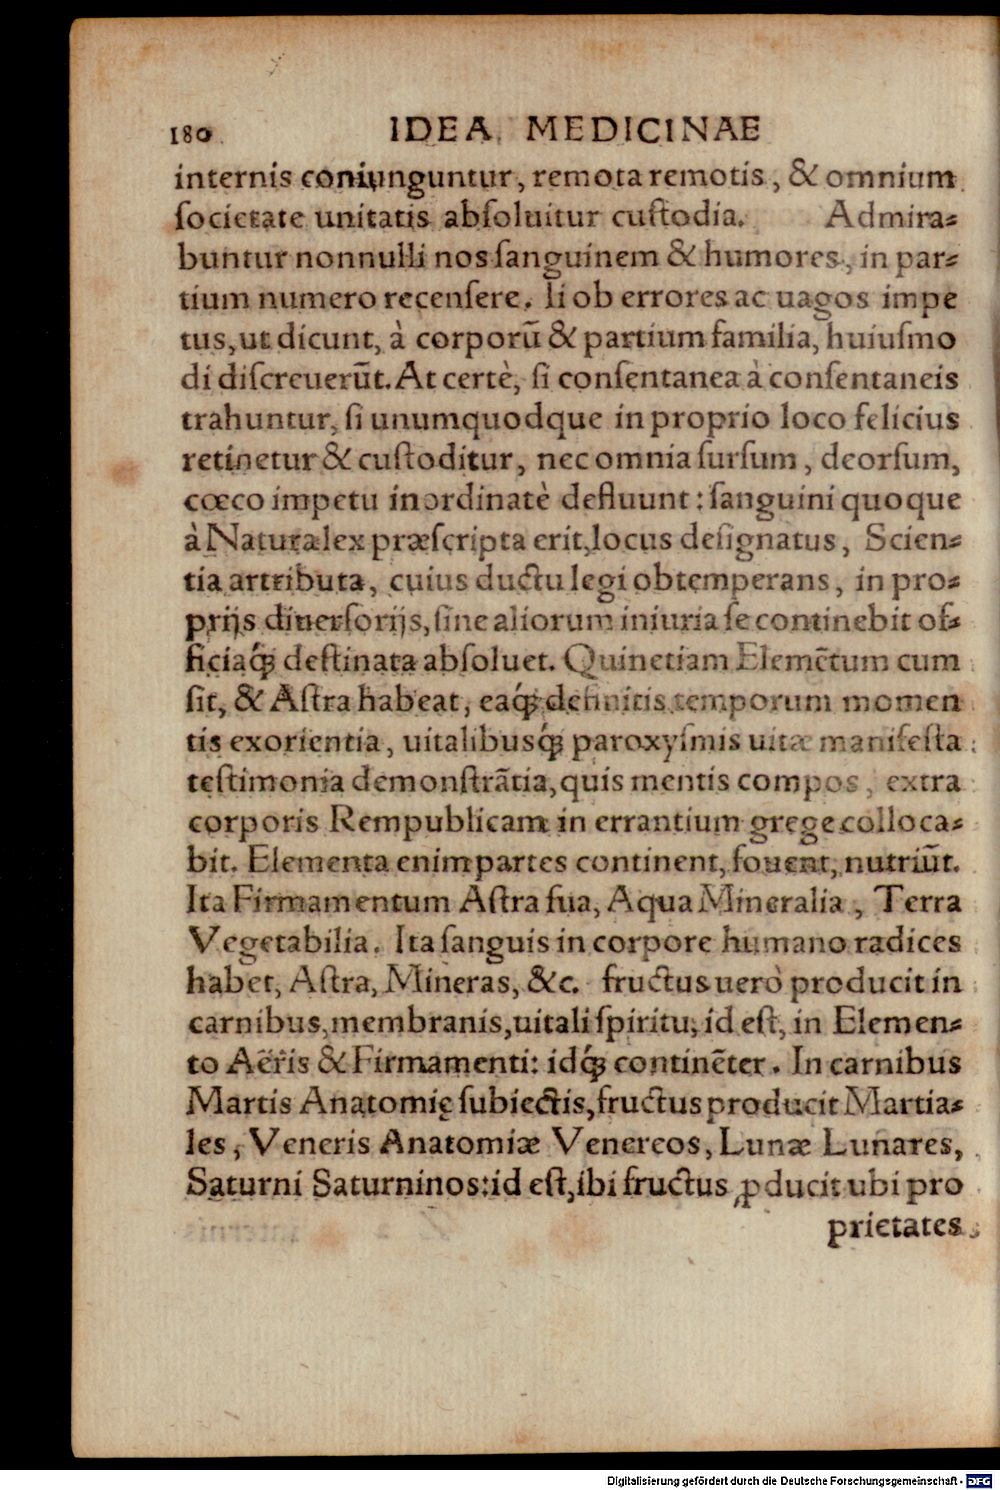 180 IDEA MEDICINAE
internis coniunguntur, remota remotis, & omnium
ſocietate unitatis abſoluitur cuſtodia. Admira⸗
buntur nonnulli nos ſanguinem & humores, in par⸗
tium numero recenſere. Ii ob errores ac uagos impe
tus, ut dicunt, à corporũ & partium familia, huiuſmo
di diſcreuerũt. At certè, ſi conſentanea à conſentaneis
trahuntur, ſi unumquodque in proprio loco felicius
retinetur & cuſtoditur, nec omnia ſurſum, deorſum,
cœco impetu inordinatè defluunt: ſanguini quoque
à Natura lex præſcripta erit, locus deſignatus, Scien⸗
tia attributa, cuius ductu legi obtemperans, in pro⸗
prijs diuerſorijs, ſine aliorum iniuria ſe continebit of⸗
ficiaq́ꝫ deſtinata abſoluet. Quinetiam Elemẽtum cum
ſit, & Aſtra habeat, eaq́ꝫ definitis temporum momen
tis exorientia, uitalibusq́ꝫ paroxyſmis uitæ manifeſta
teſtimonia demonſtrãtia, quis mentis compos, extra
corporis Rempublicam in errantium grege colloca⸗
bit. Elementa enim partes continent, fouent, nutriũt.
Ita Firmamentum Aſtra ſua, Aqua Mineralia, Terra
Vegetabilia. Ita ſanguis in corpore humano radices
habet, Aſtra, Mineras, &c. fructus uerò producit in
carnibus, membranis, uitali ſpiritu, id eſt, in Elemen⸗
to Aëris & Firmamenti: idq́ꝫ continẽter. In carnibus
Martis Anatomię ſubiectis, fructus producit Martia⸗
les, Veneris Anatomiæ Venereos, Lunæ Lunares,
Saturni Saturninos: id eſt, ibi fructus ꝓducit ubi pro
prietates
Digitalisierung gefördert durch die Deutsche Forschungsgemeinschaft - DFG